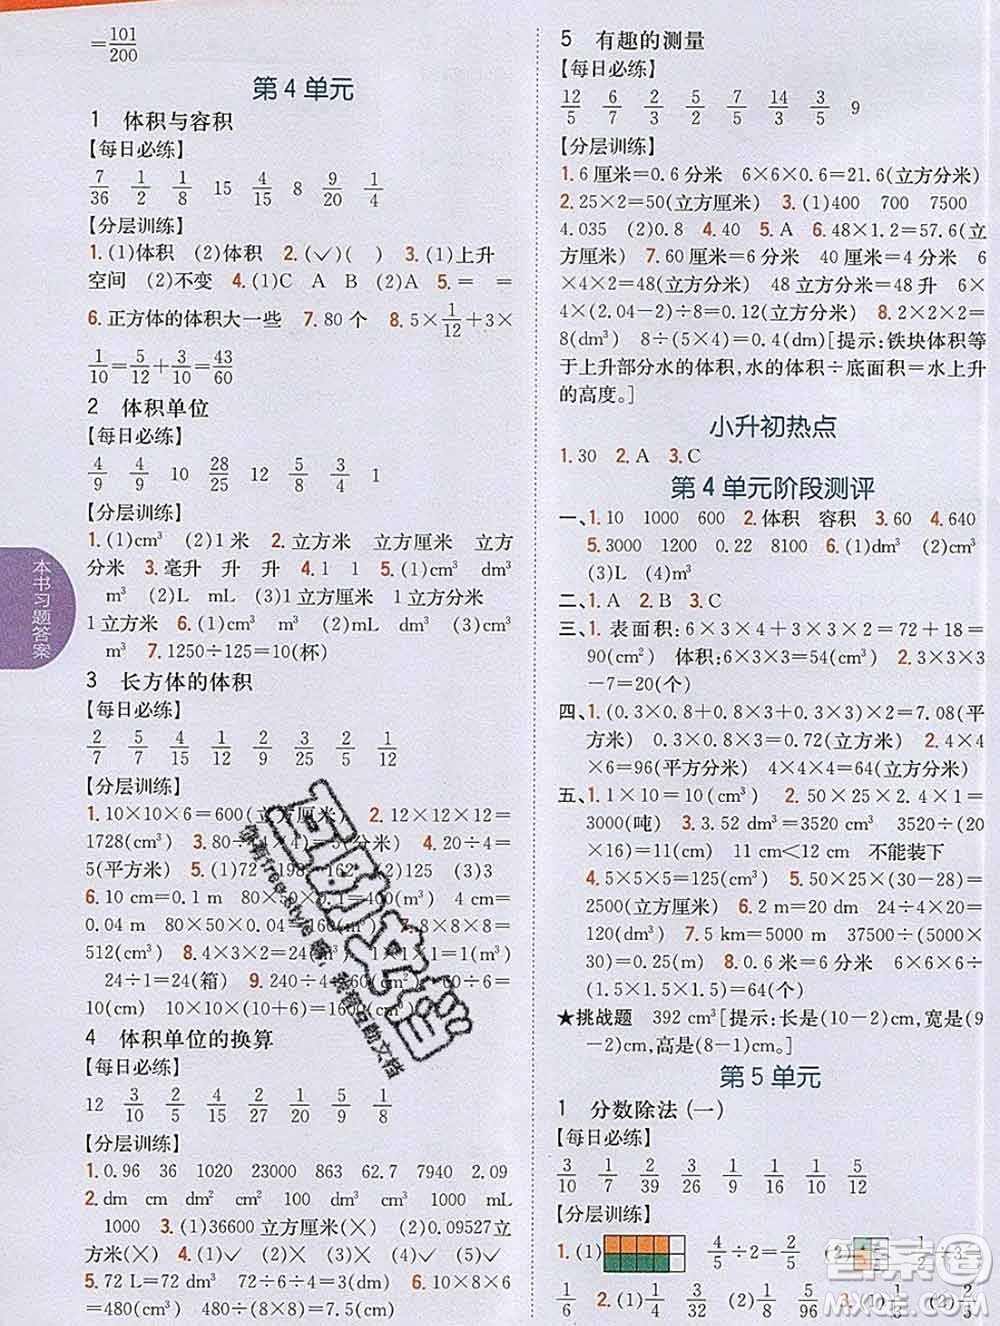 =101/200
第4单元
1 体积与容积
【每日必练】
7/36 1/2 1/8 15 4/15 8 9/20 1/4
【分层训练】
1.(1)体积 (2)体积 2.(✓)( ) 3.(1)上升
空间 (2)不变 4.(1)C A B (2)A 5.= =
6.正方体的体积大一些 7.80 个 8.5×1/12+3×
1/10=5/12+3/10=43/60
2 体积单位
【每日必练】
4/9 4/9 10 28/25 12 3/8 3/4 1
【分层训练】
1.(1)cm³ (2)1 米 2.立方米 立方厘米 立方
分米 3.毫升 升 升 4.1 1 5.(1)cm³ dm³
m³ (2)L mL (3)1 立方厘米 1 立方分米
1 立方米 6.(1)cm³ (2)mL dm³ (3)cm³
dm³ m³ 7.1250÷125=10(杯)
3 长方体的体积
【每日必练】
2/7 5/7 7/12 1/12 3/10 2/5 1/2
【分层训练】
1.10×10×6=600(立方厘米) 2.12×12×12=
1728(cm³) 3.80÷ ×4)=4(cm) 4.20÷4=
5(平方米) 5.(1)72 198 162 (2)125 (3)3
6.10 cm=0.1 m 80×50× (m³) 4 cm=
0.04 m 80×50×0.04=160(m³) 7.8×8×8=
512(cm³) 8.4×3×2= 1×1×1=1(m³)
24÷1=24(箱) 9.
10(cm) 10×10×(10+6)=1600(cm³)
4 体积单位的换算
【每日必练】
12 3/10 2/5 4/5 2/27 5/14 1/10 1/8
【分层训练】
1.0.96 36 1020 23000 863 7940 2.09
2.dm cm dm² cm² 100 dm³ cm³ 1000 mL
1000 3.(1)36600 立方厘米(×) (2)0.09527立
方米(×) 4.(1)✓ (2)✓ (3)× (4)✓ (5)✓
5.72 L=72 dm³ 72÷6=12(dm²) 6.10×6×8
=480(cm³) 480÷(8×8)=7.5(cm)
本书习题答案
5 有趣的测量
【每日必练】
12/5 6/7 2/3 2/5 3/4 14/3 3/5 9
【分层训练】
1.6 厘米=0.6 分米 6×6×0.6=21.6(立方分米)
2.25×2=50(立方厘米) 3.(1)400 700 7500
4.035 (2)0.8 4.40 5.A 6.6×8×1.2=57.6(立
方分米) 7.60 厘米=6 分米 40 厘米=4 分米 6
×4×2=48(立方分米) 48 立方分米=48 升 6×4
×(2.04-2)÷8=0.12(立方分米) 8.2×2×2=
8(dm³) 8÷(5×4)=0.4(dm)[提示:铁块体积等
于上升部分水的体积,水的体积÷底面积=水上升
的高度。]
小升初热点
1.30 2.A 3.C
第4单元阶段测评
一、1.10 1000 600 2.体积 容积 3.60 4.640
5.3000 1200 0.22 8100 6.(1)cm³ (2)m³
(3)L 7.15
二、1.B 2.A 3.B 4.A 5.C
三、1.表面积:6×3×4+3×3×2=72+18=
90(cm²) 体积:6×3×3=54(cm³) 2.3×3×3
-7=20(个)
四、1.(0.3×0.8+0.8×3+0.3×3)×2=7.08(平
方米) 0.3×0.8×3=0.72(立方米) 2.4×4
×6=96(平方分米) 4×4×4=64(立方分米)
五、1.1×10×8=80(立方分米) 2.50×25×2.4×1=
3000(吨) 3.3.52 dm³=3520 cm³ 3520÷(20
×16)=11(cm) 11 cm<12 cm 不能装下
4.5×5×5=125(cm³) 5.50×25×(30-28)=
2500(立方厘米) 6.2 m=20 dm 24÷4×20=
120(dm³) 7.5 km=5000 m 37500÷(5000×
30)=0.25(m) 8.0.6 米=6 分米 6×6×6÷
(1.5×1.5×1.5)=64(个)
★挑战题 392 cm³[提示:长是(10-2)cm,宽是(9
-2)cm,高是(8-1)cm。]
第5单元
1 分数除法(一)
【每日必练】
3/10 1/7 2/39 1/26 1/9 1/16 5/8 5/12
【分层训练】
1.(1) 4/5÷2=2/5 (2) 1/2÷3=
1/6 2.(1)1/8 4/9 3/32 1/8 5/12 3.(1)1/3 (2)2/5